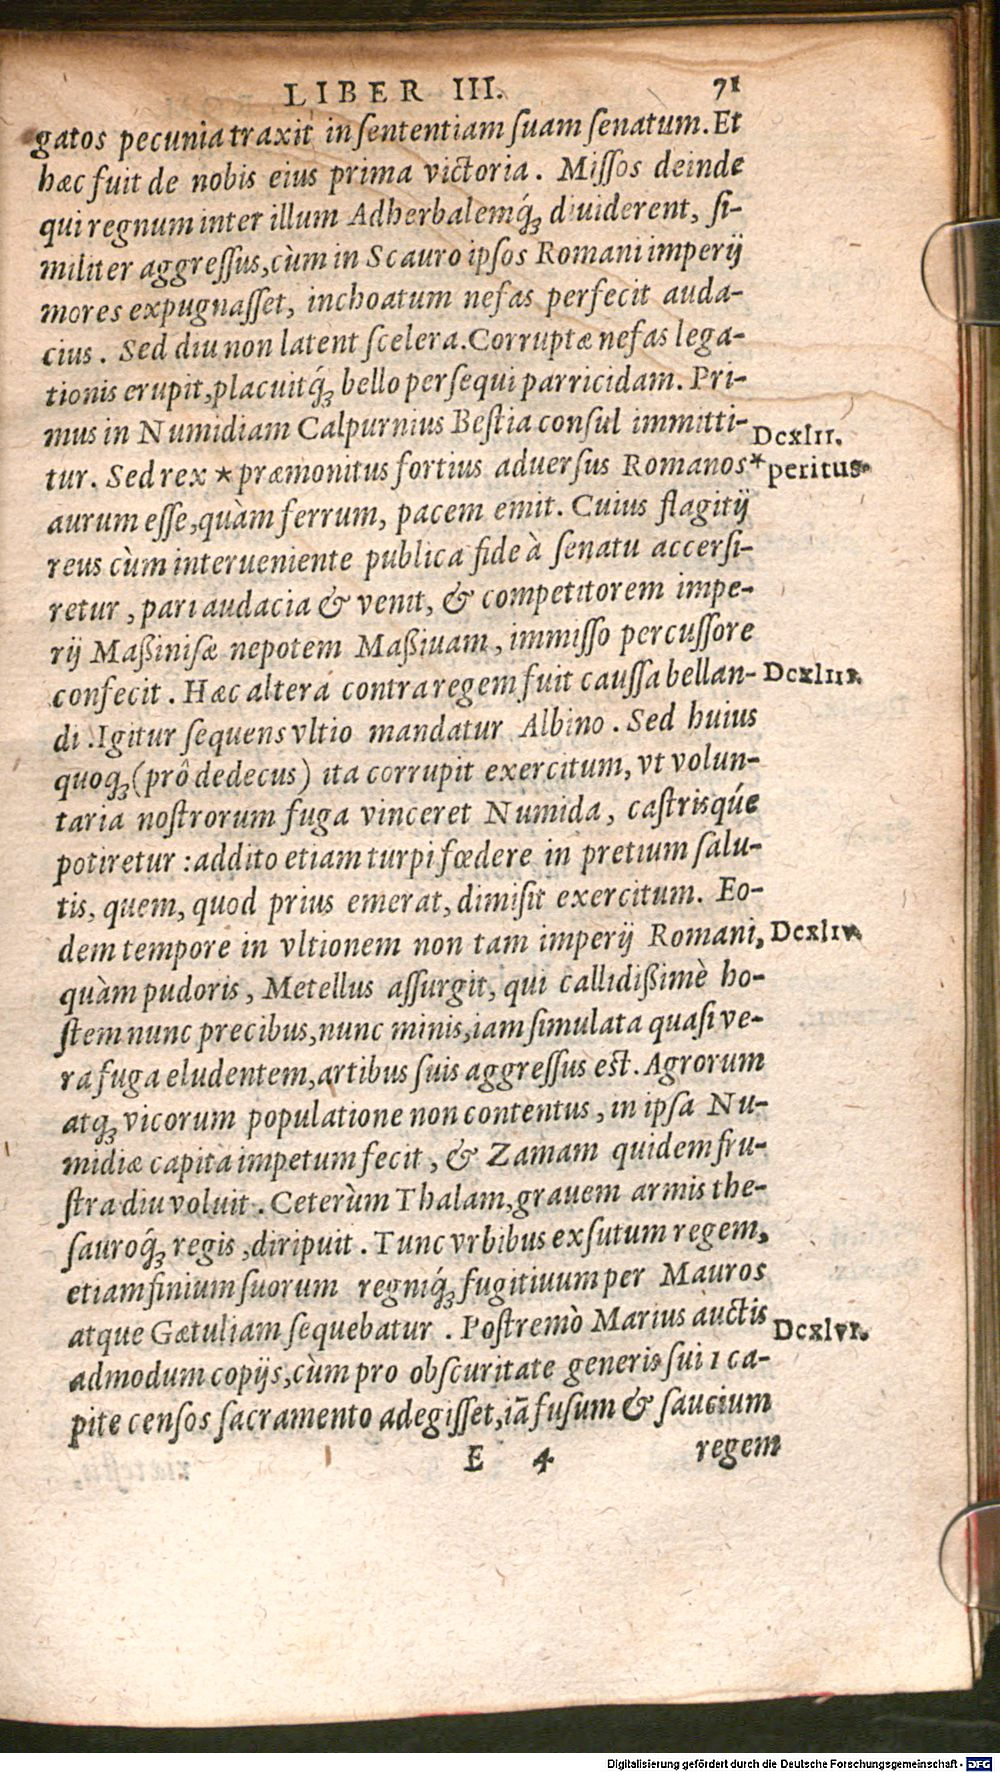 LIBER III. 71
gatos pecunia traxit in ſententiam ſuam ſenatum. Et
hæc fuit de nobis eius prima victoria. Miſſos deinde
qui regnum inter illum Adherbalemq́ꝫ diuiderent, ſi-
militer aggreſſus, cùm in Scauro ipſos Romani imperij
mores expugnaſſet, inchoatum nefas perfecit auda-
cius. Sed diu non latent ſcelera. Corruptæ nefas lega-
tionis erupit, placuitq́ꝫ bello perſequi parricidam. Pri-
mus in Numidiam Calpurnius Beſtia conſul immitti-
Dcxlii.
tur. Sed rex * præmonitus fortius aduerſus Romanos
* peritus
aurum eſſe, quàm ferrum, pacem emit. Cuius flagitij
reus cùm interueniente publica fide à ſenatu accerſi-
retur, pari audacia & venit, & competitorem impe-
rij Maßiniſæ nepotem Maßiuam, immiſſo percuſſore
confecit. Hæc altera contra regem fuit cauſſa bellan-
Dcxliii.
di. Igitur ſequens vltio mandatur Albino. Sed huius
quoqꝫ (prô dedecus) ita corrupit exercitum, vt volun-
taria noſtrorum fuga vinceret Numida, caſtrisqúe
potiretur: addito etiam turpi fœdere in pretium ſalu-
tis, quem, quod prius emerat, dimiſit exercitum. Eo-
dem tempore in vltionem non tam imperij Romani,
Dcxliv.
quàm pudoris, Metellus aſſurgit, qui callidißimè ho-
ſtem nunc precibus, nunc minis, iam ſimulata quaſi ve-
ra fuga eludentem, artibus ſuis aggreſſus eſt. Agrorum
atqꝫ vicorum populatione non contentus, in ipſa Nu-
midiæ capita impetum fecit, & Zamam quidem fru-
ſtra diu voluit. Ceterùm Thalam, grauem armis the-
ſauroq́ꝫ regis, diripuit. Tunc vrbibus exſutum regem,
etiam finium ſuorum regniq́ꝫ fugitiuum per Mauros
atque Gætuliam ſequebatur. Poſtremò Marius auctis
Dcxlvi.
admodum copijs, cùm pro obſcuritate generis ſui 1 ca-
pite cenſos ſacramento adegiſſet, iā fuſum & ſaucium
E 4 regem
Digitalisierung gefördert durch die Deutsche Forschungsgemeinschaft - DFG